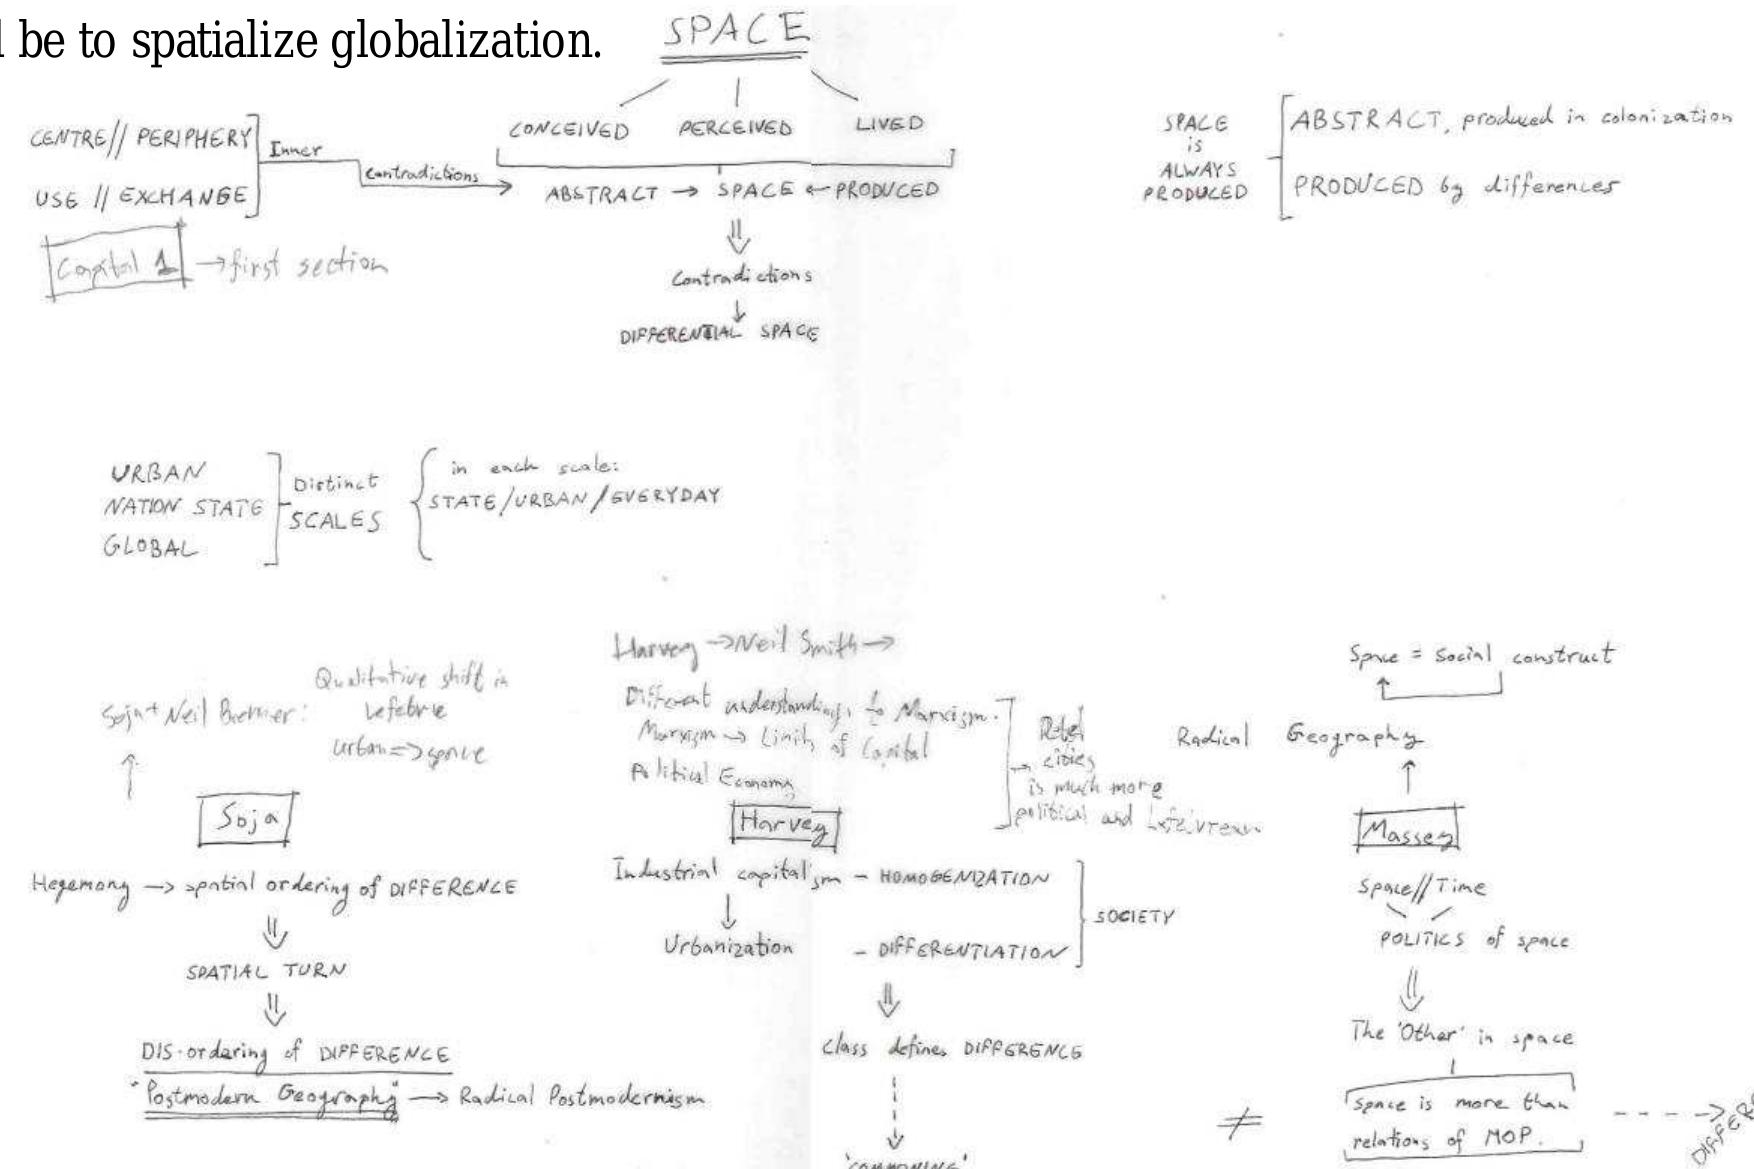 be to spatialize globalization.
SPACE
CONCEIVED PERCEIVED LIVED
CENTRE// PERIPHERY
USE // EXCHANGE
Inner
Contradictions
ABSTRACT → SPACE ← PRODUCED
Capital 1 → first section
Contradictions
DIFFERENTIAL SPACE
SPACE
is
ALWAYS
PRODUCED
ABSTRACT, produced in colonization
PRODUCED by differences
URBAN
NATION STATE
GLOBAL
Distinct
SCALES
in each scale:
STATE/URBAN/EVERYDAY
Soja + Neil Brenner:
Qualitative shift in
Lefebvre
urban => space
Soja
Hegemony → spatial ordering of DIFFERENCE
SPATIAL TURN
DIS-ordering of DIFFERENCE
"Postmodern Geography" → Radical Postmodernism
Harvey → Neil Smith →
Different understandings to Marxism.
Marxism → Limits of Capital
Political Economy
Rebel
→ cities
is much more
political and Lefebvrean
Harvey
Industrial capitalism - HOMOGENIZATION
Urbanization - DIFFERENTIATION
SOCIETY
class defines DIFFERENCE
'COMMONING'
Space = Social construct
Radical Geography
Massey
Space//Time
POLITICS of space
The 'Other' in space
≠
space is more than
relations of MOP.